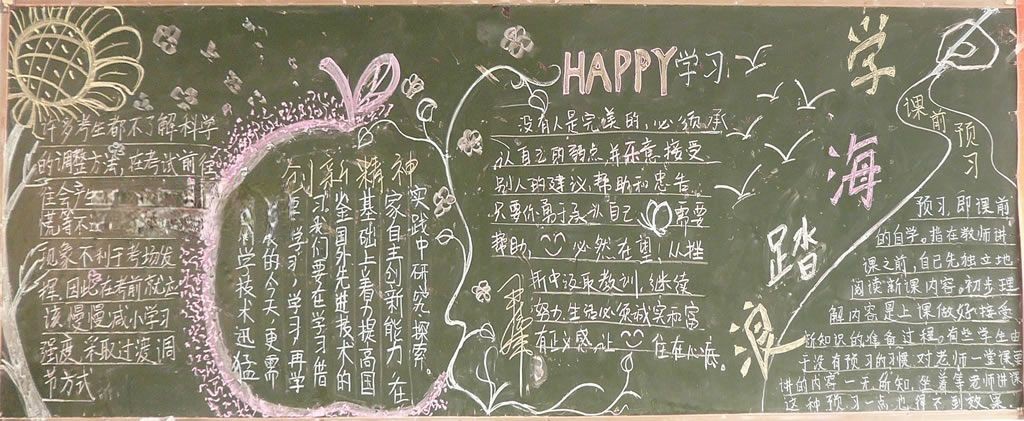 许多考生都不了解科学
的调整方法,在考试前往
往会产生
慌等不
现象,不利于考场发
挥,因此在考前就应
该慢慢减小学习
强度,采取过渡调
节方式
创新精神
实践中研究探索。
家自主创新能力,在
基础上着力提高国
鉴国外先进技术的
习,我们要在学习借
要学习,学习,再学
展的今天,更需
科学技术迅猛
HAPPY学习
没有人是完美的,必须承
认自己的弱点并乐意接受
别人的建议,帮助和忠告。
只要你勇于承认自己 需要
帮助, 必然在望,从挫
折中汲取教训,继续
努力,生活必须诚实和富
有正义感,让 住在心底。
学海踏浪
课前预习
预习,即课前
的自学。指在教师讲
课之前,自己先独立地
阅读新课内容。初步理
解内容,是上课做好接受
新知识的准备过程。有些学生由
于没有预习的习惯,对老师一堂课要
讲的内容一无所知,坐着等老师讲课
这种预习一点也得不到效果.